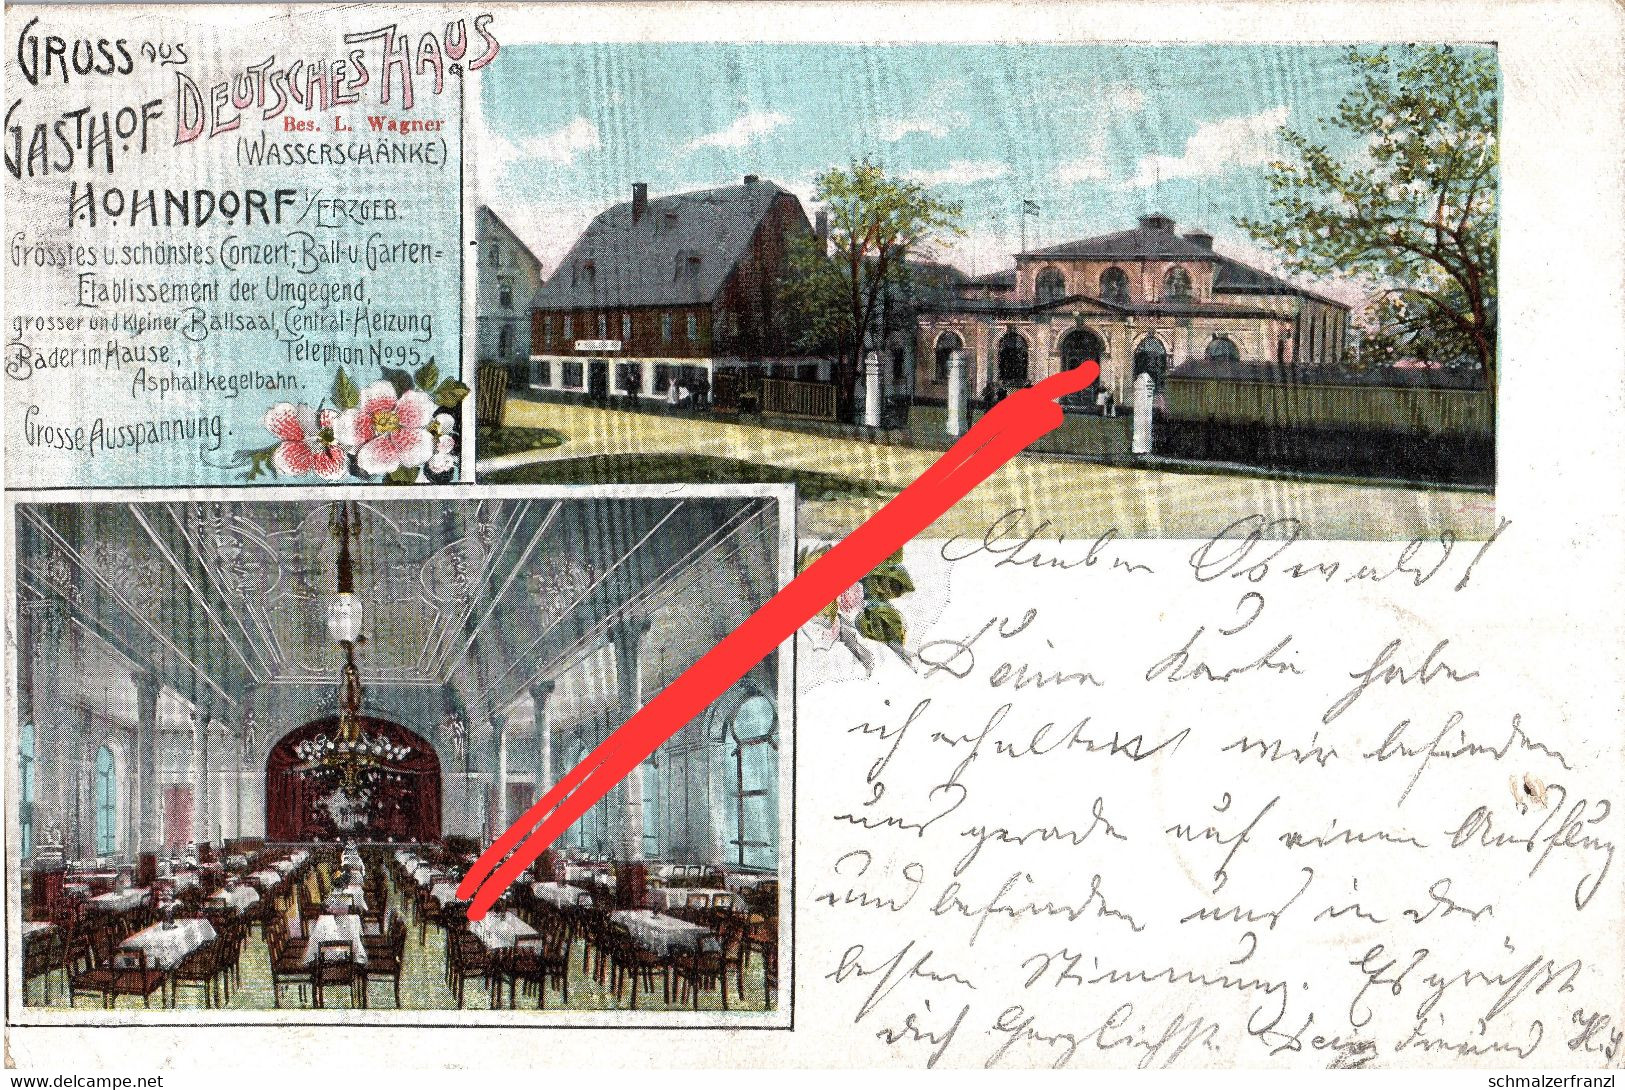 GRUSS AUS
DEUTSCHES HAUS
GASTHOF
Bes. L. Wagner
(WASSERSCHÄNKE)
HOHNDORF i/ERZGEB.
Grösstes u. schönstes Conzert-, Ball- u. Garten=
Etablissement der Umgegend,
grosser und kleiner Ballsaal, Central-Heizung
Bäder im Hause, Telephon No 95.
Asphaltkegelbahn.
Grosse Ausspannung.
Lieber Oswald!
Deine Karte habe
ich erhalten wir befinden
uns gerade auf einen Ausflug
und befinden uns in der
besten Stimmung. Es grüßt
dich herzlichst. Dein Freund
www.delcampe.net
schmalzerfranzl